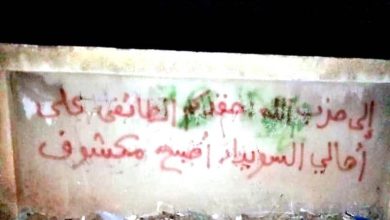 إلى حزب الله حقدكم الطائفي على
أهالي السويداء أصبح مكشوف